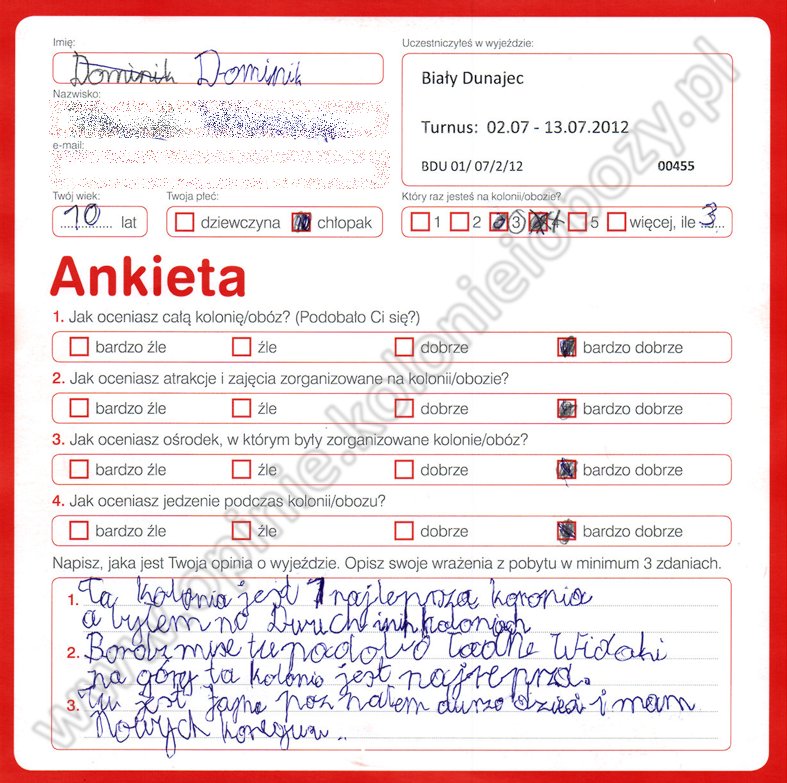 Imię:
Dominik Dominik
Uczestniczyłeś w wyjeździe:
Biały Dunajec
Turnus: 02.07 - 13.07.2012
BDU 01/ 07/2/12 00455
Nazwisko:
e-mail:
Twój wiek:
10 lat
Twoja płeć:
dziewczyna chłopak
Który raz jesteś na kolonii/obozie?
1 2 3 4 5 więcej, ile 3
Ankieta
1. Jak oceniasz całą kolonię/obóz? (Podobało Ci się?)
bardzo źle źle dobrze bardzo dobrze
2. Jak oceniasz atrakcje i zajęcia zorganizowane na kolonii/obozie?
bardzo źle źle dobrze bardzo dobrze
3. Jak oceniasz ośrodek, w którym były zorganizowane kolonie/obóz?
bardzo źle źle dobrze bardzo dobrze
4. Jak oceniasz jedzenie podczas kolonii/obozu?
bardzo źle źle dobrze bardzo dobrze
Napisz, jaka jest Twoja opinia o wyjeździe. Opisz swoje wrażenia z pobytu w minimum 3 zdaniach.
1. Ta kolonia jest najlepsza koronia
a byłem na Dwuch koloniach
2. Bardz mi się tu Ładne Widoki
na góry ta kolonia jest
3. Tu jest fajne poznałem dużo dzieci i mam
Nowych
www.opinie.kolonieiobozy.pl